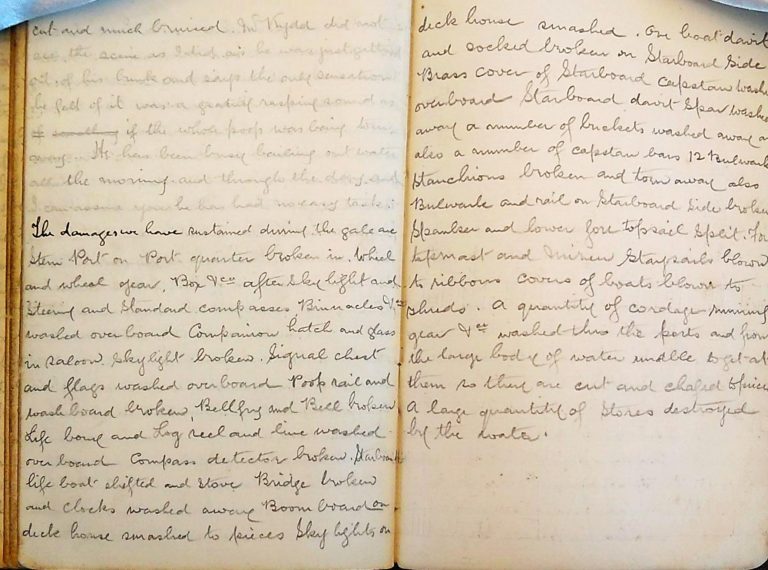 cut and much bruised. Mr Kydd did not
see the scene as I did as he was just getting
out of his bunk and says the only sensation
he felt of it was a grating rasping sound as
if something if the whole poop was being torn
away. He has been busy bailing out water
all the morning and through the day and
I can assure you he has had no easy task.
The damages we have sustained during the gale are
Stern Port on Port quarter broken in. Wheel
and wheel gear, Box &c after Sky light and
Steering and Standard compasses Binnacles &c
washed overboard Companion hatch and glass
in saloon skylight broken. Signal chest
and flags washed overboard Poop rail and
wash board broken, Bellfry and Bell broken
Life bouy and Log reel and line washed
over board Compass detector broken. Starboard
life boat shifted and stove Bridge broken
and clocks washed away Boom board on
deck house smashed to pieces Sky lights on
deck house smashed. One boat davit
and socked broken on Starboard Side
Brass cover of Starboard Capstan washed
overboard Starboard davit Spar washed
away a number of buckets washed away
also a number of capstan bars 12 Bulwark
Stanchions broken and torn away also
Bulwarks and rail on Starboard Side broken
Spanker and lower fore topsail Split. Fore
topmast and mizen Staysails blown
to ribbons covers of boats blown to
shreds. A quantity of cordage running
gear &c washed thro the ports and from
the large body of water unable to get at
them so they are cut and chafed to pieces
A large quantity of Stores destroyed
by the water.